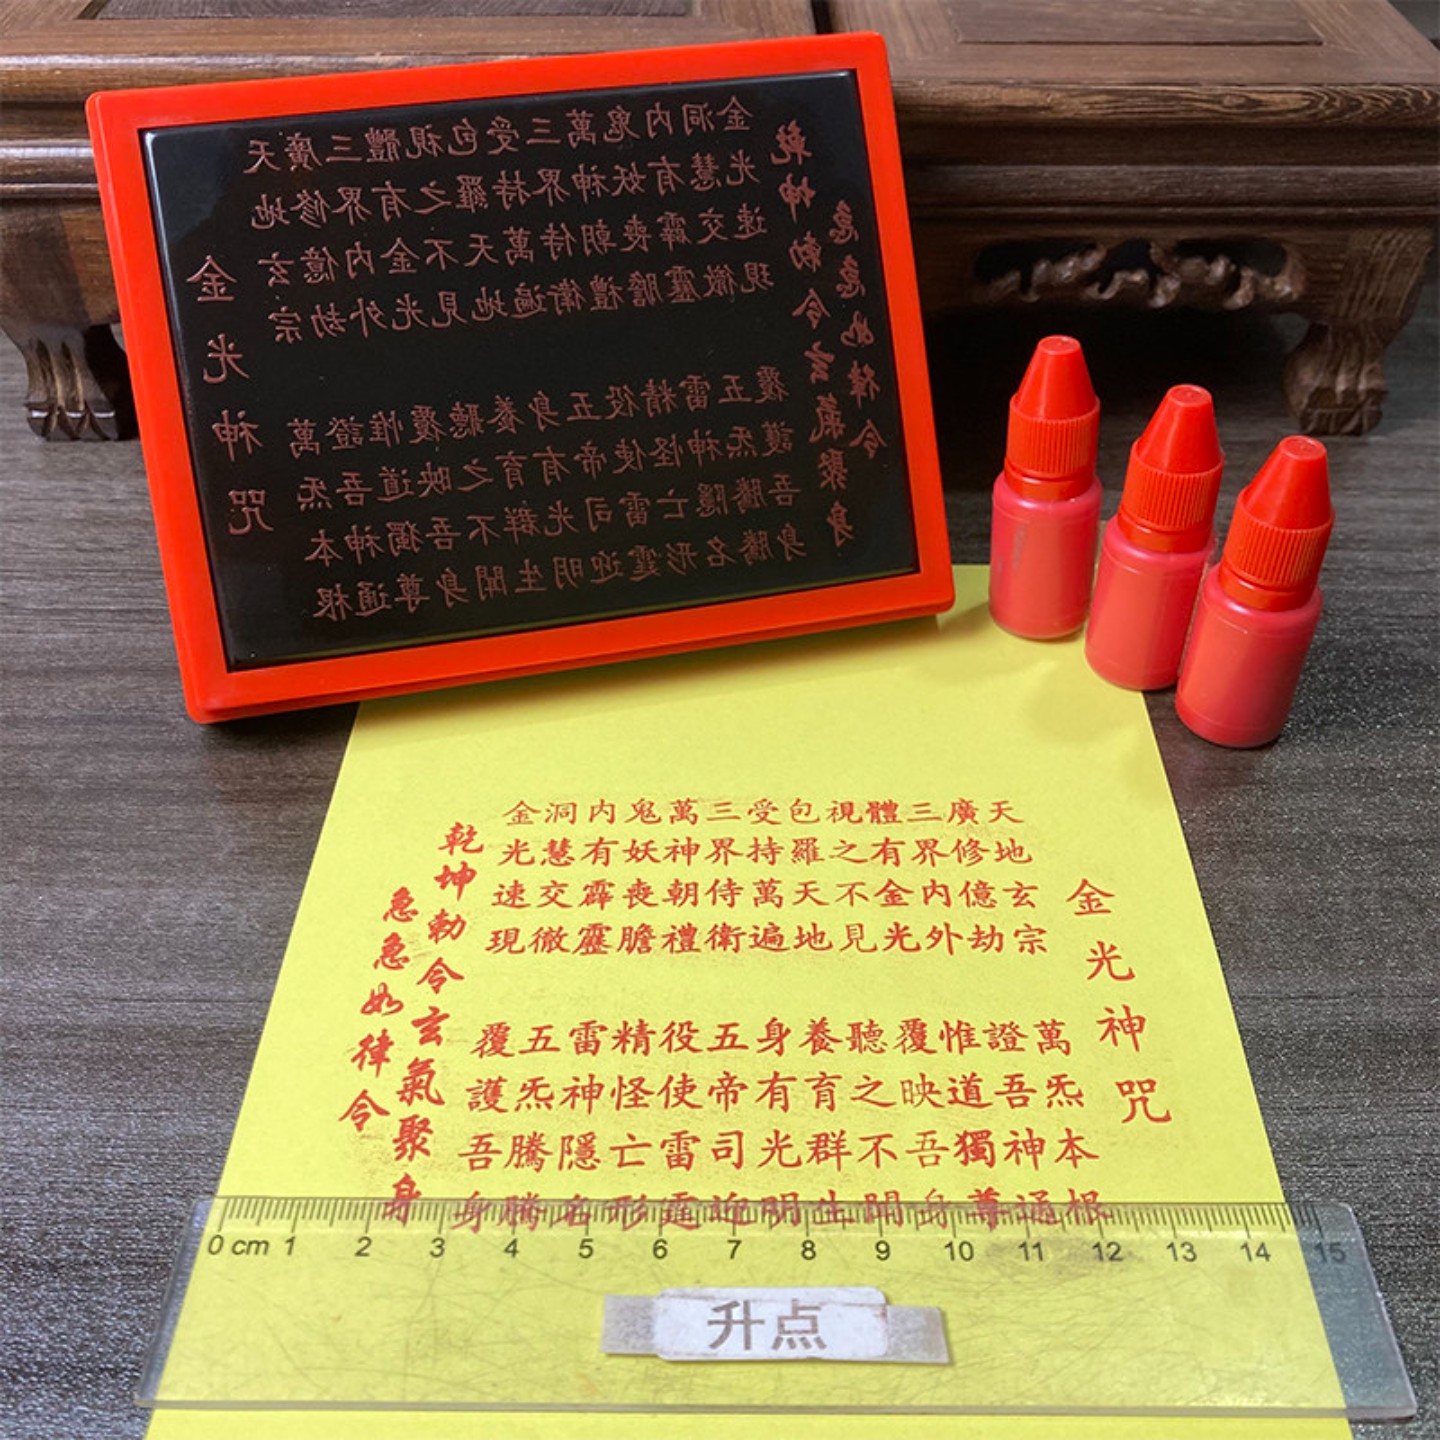 金光神咒
天地玄宗
萬炁本根
廣修億劫
證吾神通
三界内外
惟道獨尊
體有金光
覆映吾身
視之不見
聽之不聞
包羅天地
養育群生
受持萬遍
身有光明
三界侍衛
五帝司迎
萬神朝禮
役使雷霆
鬼妖喪膽
精怪亡形
内有霹靂
雷神隱名
洞慧交徹
五炁騰騰
金光速現
覆護吾身
乾坤勅令玄氣聚身
急急如律令
金光神咒
天地玄宗
萬炁本根
廣修億劫
證吾神通
三界内外
惟道獨尊
體有金光
覆映吾身
視之不見
聽之不聞
包羅天地
養育群生
受持萬遍
身有光明
三界侍衛
五帝司迎
萬神朝禮
役使雷霆
鬼妖喪膽
精怪亡形
内有霹靂
雷神隱名
洞慧交徹
五炁騰騰
金光速現
覆護吾身
乾坤勅令玄氣聚身
急急如律令
0 cm 1 2 3 4 5 6 7 8 9 10 11 12 13 14 15
升点